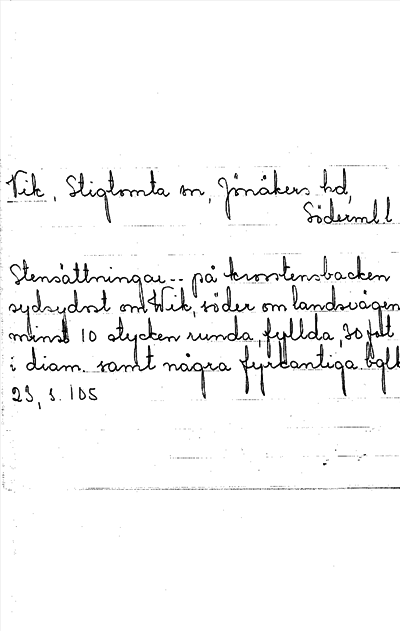 Vik, Stigtomta sn, Jönåkers hd,
Söderml l
Stensättningar -- på krosstensbacken
sydsydost om Wik, söder om landsvägen
minst 10 stycken runda, fyllda, 30 fot
i diam. samt några fyrkantiga.
23, s. 105